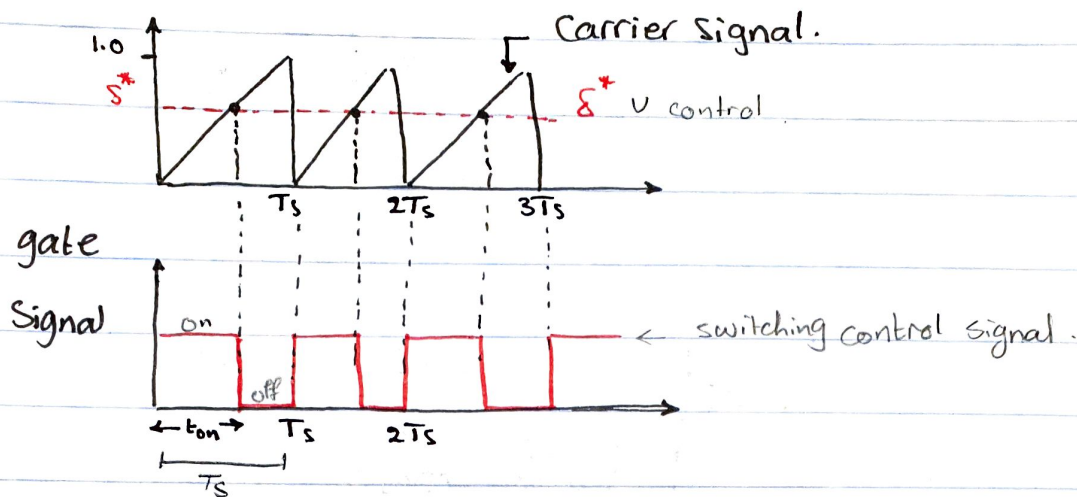 Carrier Signal.
1.0
δ*
δ* v control
Ts 2Ts 3Ts
gate
Signal
on
switching control signal.
off
ton Ts 2Ts
Ts